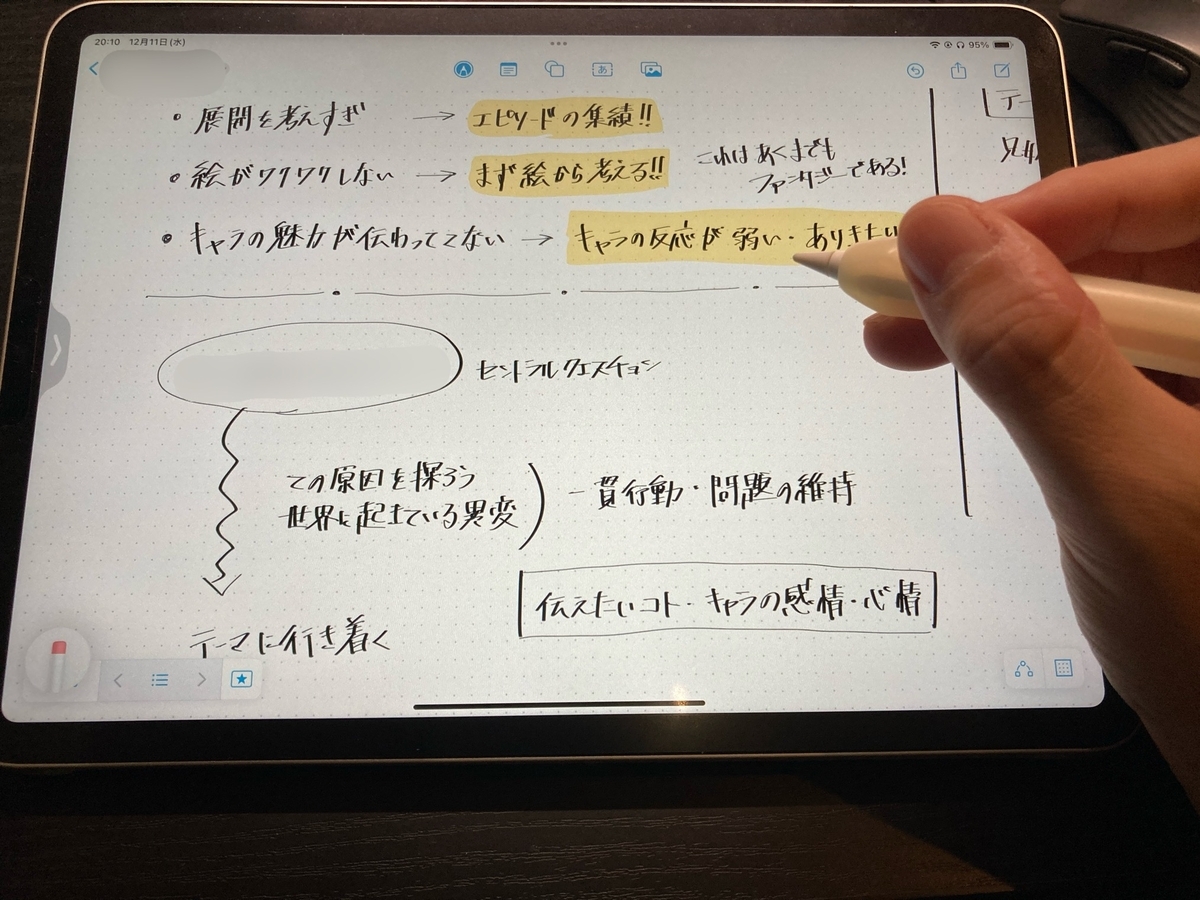 20:10 12月11日(水)
95%
あ
・展開を考えすぎ → エピソードの集積!!
・絵がワクワクしない → まず絵から考える!!
これはあくまでも
ファンタジーである!
・キャラの魅力が伝わってこない → キャラの反応が弱い・ありきたり
テー
セントラルクエスチョン
この原因を探ろう
世界に起きている異変
一貫行動・問題の維持
伝えたいコト・キャラの感情・心情
テーマに行き着く